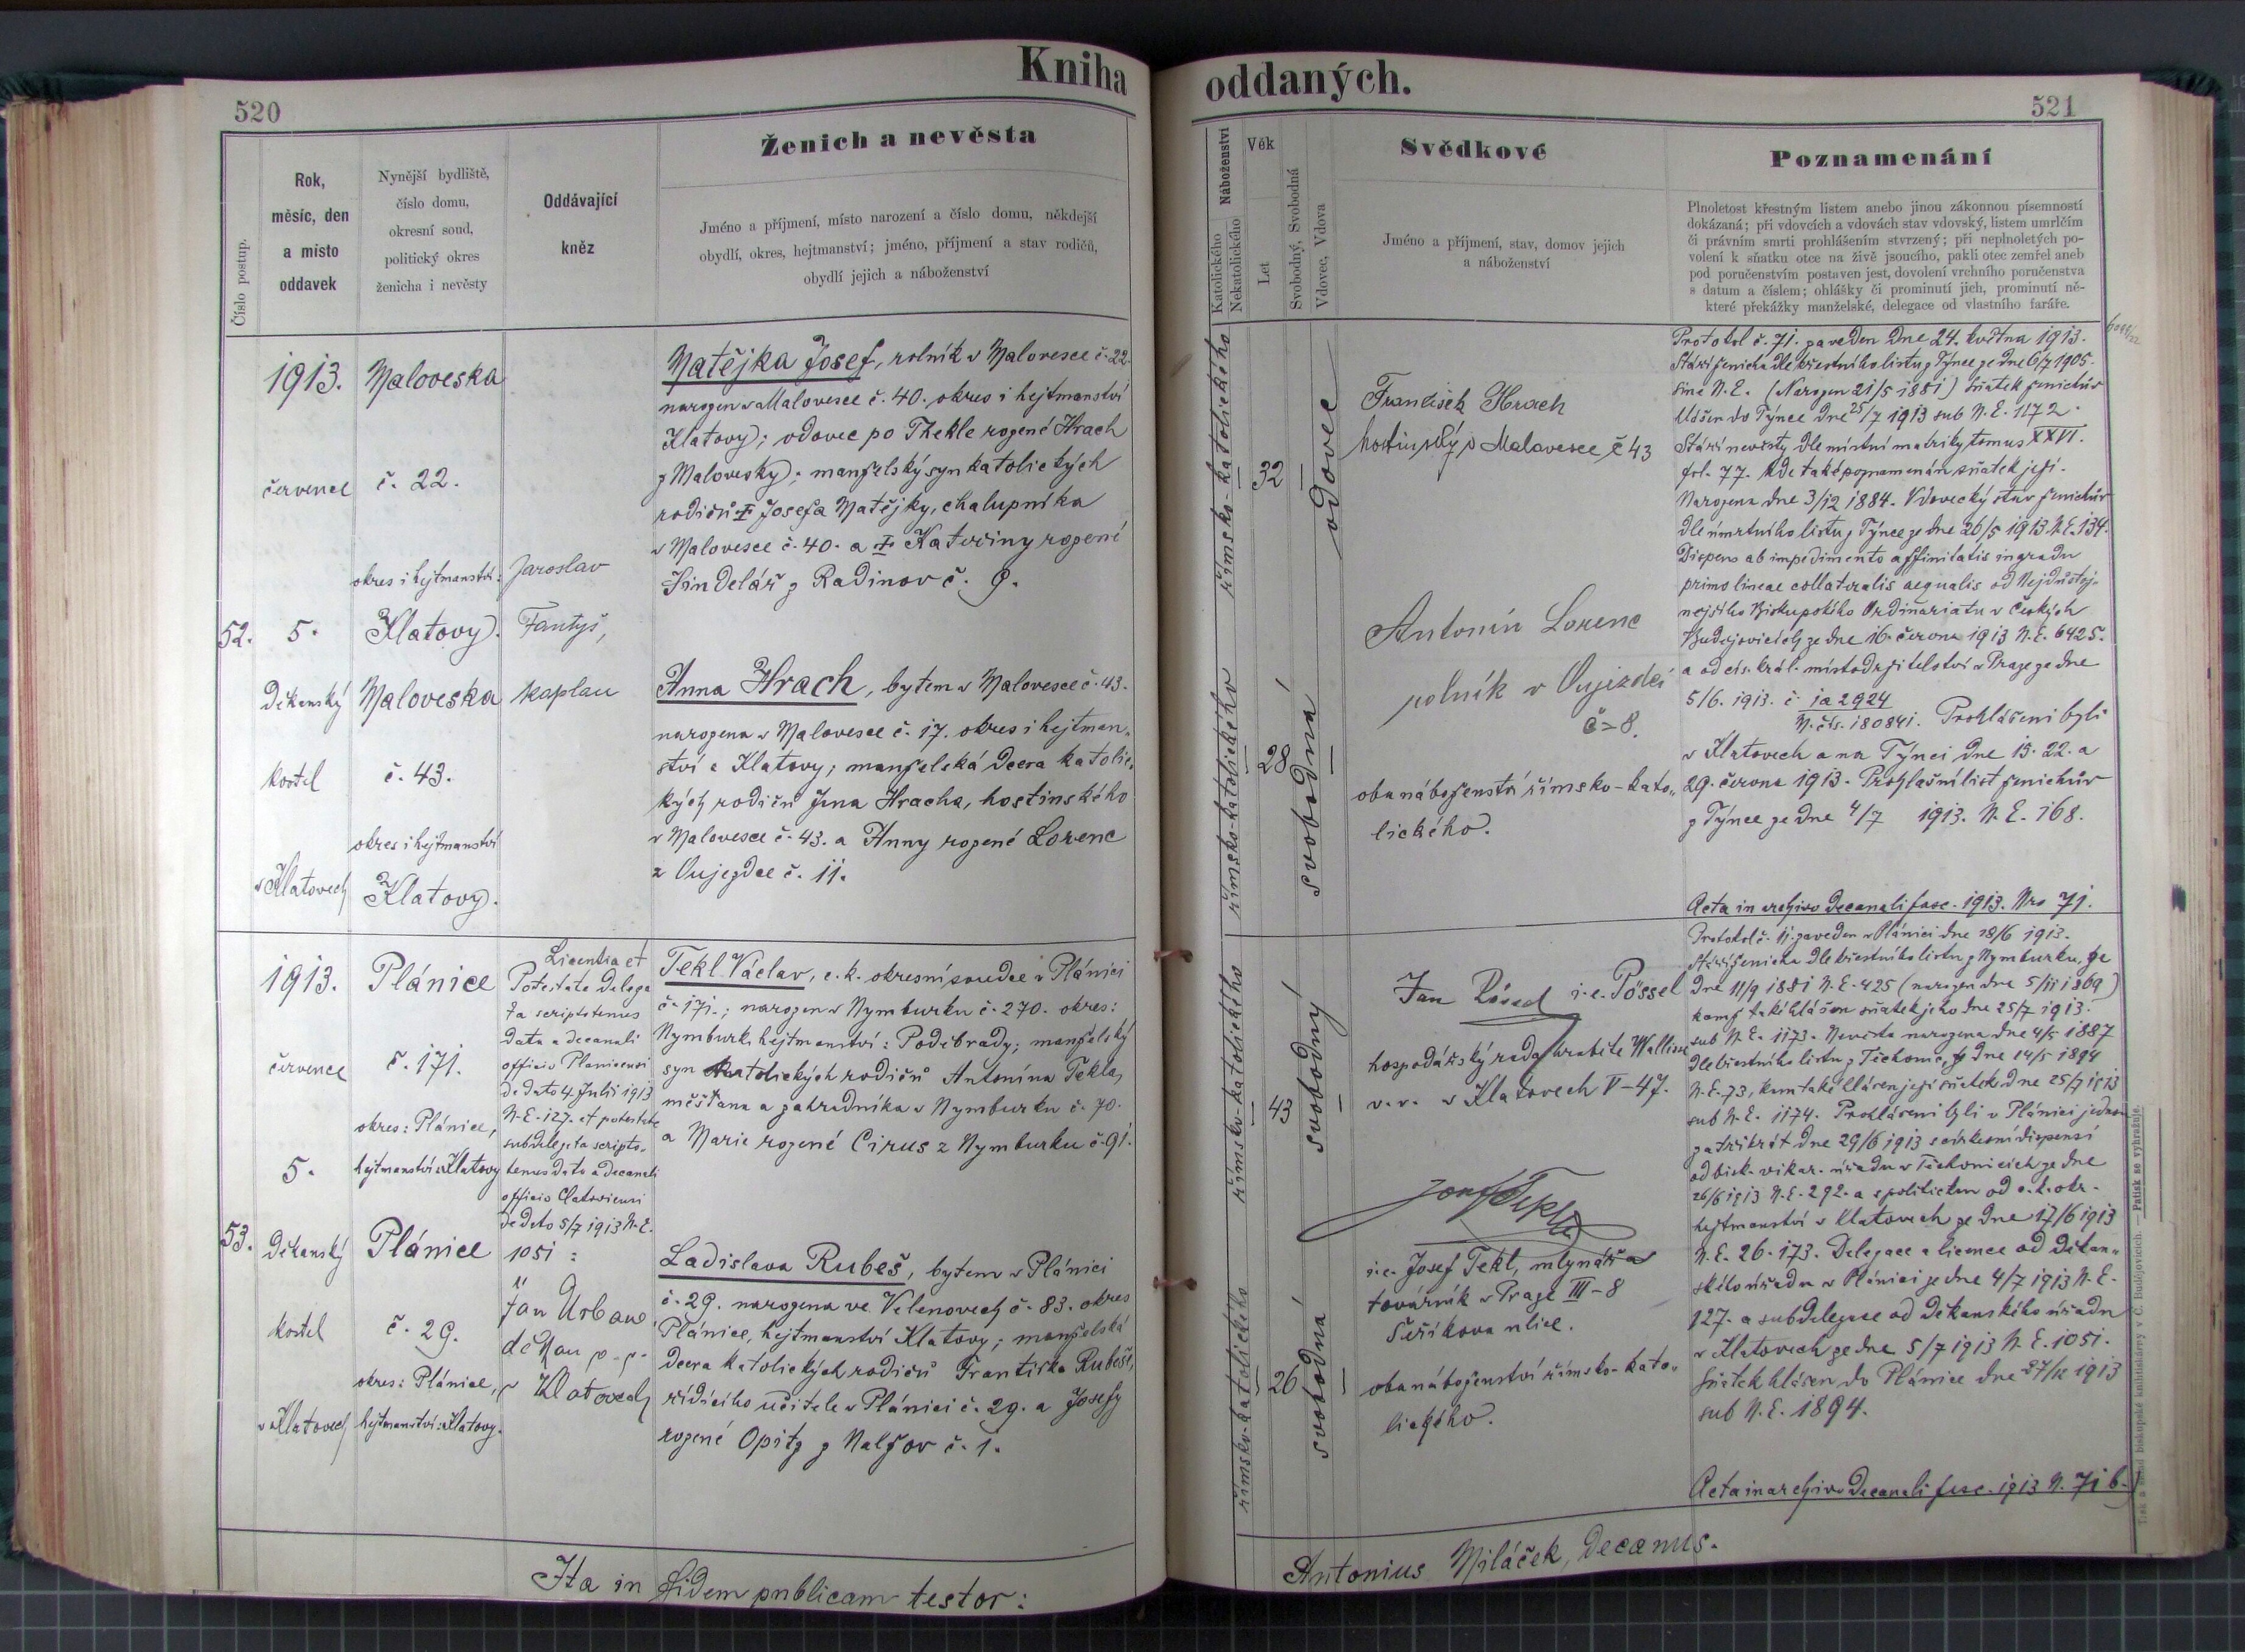 Kniha oddaných.
520
521
Ženich a nevěsta
Číslo postup.
Rok,
měsíc, den
a místo
oddavek
Nynější bydliště,
číslo domu,
okresní soud,
politický okres
ženicha i nevěsty
Oddávající
kněz
Jméno a příjmení, místo narození a číslo domu, někdejší
obydlí, okres, hejtmanství; jméno, příjmení a stav rodičů,
obydlí jejich a náboženství
Náboženství
Katolického
Nekatolického
Věk
Let
Svobodný, Svobodná
Vdovec, Vdova
Svědkové
Jméno a příjmení, stav, domov jejich
a náboženství
Poznamenání
Plnoletost křestným listem anebo jinou zákonnou písemností
dokázaná; při vdovcích a vdovách stav vdovský, listem umrlčím
či právním smrti prohlášením stvrzený; při neplnoletých po-
volení k sňatku otce na živě jsoucího, pakli otec zemřel aneb
pod poručenstvím postaven jest, dovolení vrchního poručenstva
s datum a číslem; ohlášky či prominutí jich, prominutí ně-
které překážky manželské, delegace od vlastního faráře.
52.
1913.
červenec
5.
Děkanský
kostel
v Klatovech
Maloveska
č. 22.
okres i hejtmanství:
Klatovy.
Maloveska
č. 43.
okres i hejtmanství
Klatovy.
Jaroslav
Fantyš,
kaplan
Matějka Josef, rolník v Malovesce č. 22.
narozen v Malovesce č. 40. okres i hejtmanství
Klatovy; vdovec po Thekle rozené Hrach
z Malovesky; manželský syn katolických
rodičů † Josefa Matějky, chalupníka
v Malovesce č. 40. a † Kateřiny rozené
Šindelář z Radinov č. 9.
Anna Hrach, bytem v Malovesce č. 43.
narozena v Malovesce č. 17. okres i hejtman-
ství Klatovy; manželská dcera katolic-
kých rodičů Jana Hracha, hostinského
v Malovesce č. 43. a Anny rozené Lorenc
z Oujezdce č. 11.
římsko-katolického
32
vdovec
římsko-katolického
28
svobodná
František Hrach
hostinský v Malovesce č 43
Antonín Lorenc
rolník v Oujezdci
č=8.
oba náboženství římsko-kato-
lického.
Protokol č. 71. zaveden dne 24. května 1913.
Stáří ženicha dle křestního listu z Týnce ze dne 6/7 1905.
sine N. E. (Narozen 21/5 1881) Sňatek ženichův
hlášen do Týnce dne 25/7 1913 sub N. E. 1172.
Stáří nevěsty dle místní matriky tomus XXVI.
fol. 77. kde také poznamenán sňatek její.
Narozena dne 3/12 1884. Vdovecký stav ženichův
dle úmrtního listu z Týnce ze dne 26/5 1913 N. E. 134.
Dispens ab impedimento affinitatis in gradu
primo lineae collateralis aequalis od Nejdůstoj-
nejšího Biskupského Ordinariatu v Českých
Budějovicích ze dne 16. června 1913 N. E. 6425.
a od cís. král. místodržitelství v Praze ze dne
5/6. 1913. č 1a 2924
N. čís. 180841. Prohlášeni byli
v Klatovech a na Týnci dne 15. 22. a
29. června 1913. Prohlašní list ženichův
z Týnce ze dne 4/7 1913. N. E. 168.
Acta in archivo Decanali fasc. 1913. Nro 71.
53.
1913.
července
5.
Děkanský
kostel
v Klatovech
Plánice
č. 171.
okres: Plánice,
hejtmanství: Klatovy
Plánice
č. 29.
okres: Plánice,
hejtmanství: Klatovy.
Licentia et
Potestate delega
ta scriptotenus
data a decanali
officio Planicensi
de dato 4. Julii 1913
N. E. 127. et potestate
subdelegata scripto-
tenus data a decanali
officio Clatoviensi
de dato 5/7 1913 N. E.
1051:
Jan Urban
děkan
v Klatovech
Tekl Václav, c. k. okresní soudce v Plánici
č. 171.; narozen v Nymburku č. 270. okres:
Nymburk hejtmanství: Poděbrady; manželský
syn katolických rodičů Antonína Tekla,
měšťana a zahradníka v Nymburku č. 70.
a Marie rozené Cirus z Nymburku č. 91.
Ladislava Rubeš, bytem v Plánici
č. 29. narozena ve Velenovech č. 83. okres
Plánice, hejtmanství Klatovy; manželská
dcera katolických rodičů Františka Rubeše,
řídícího učitele v Plánici č. 29. a Josefy
rozené Opitz z Nalžov č. 1.
římsko-katolického
43
svobodný
římsko-katolického
26
svobodná
Jan Pössel i. e. Pössel
hospodářský rada hraběte Wallisse
v. v. v Klatovech V-47.
Josef Tekl
i. e. Josef Tekl, mlynář a
továrník v Praze III-8
Šeříkova ulice.
oba náboženství římsko-kato-
lického.
Protokol č. 11. zaveden v Plánici dne 18/6 1913.
Stáří ženicha dle křestního listu z Nymburku, ze
dne 11/9 1881 N. E. 425 (narozen dne 5/11 1869)
kamž také hlášen sňatek jeho dne 25/7 1913.
sub N. E. 1173. Nevěsta narozena dne 4/5 1887
dle křestního listu z Těchonic, ze dne 14/5 1894
N. E. 73, kam také hlášen její sňatek dne 25/7 1913
sub N. E. 1174. Prohlášeni byli v Plánici jednou
za třikrát dne 29/6 1913 s církevní dispensí
od bisk. vikar. úřadu v Těchonicích ze dne
26/6 1913 N. E. 292. a s politickou od c. k. okr.
hejtmanství v Klatovech ze dne 17/6 1913
N. E. 26.173. Delegace a licence od děkan-
ského úřadu v Plánici ze dne 4/7 1913 N. E.
127. a subdelegace od Děkanského úřadu
v Klatovech ze dne 5/7 1913 N. E. 1051.
Sňatek hlášen do Plánice dne 27/12 1913
sub N. E. 1894.
Acta in archivo Decanali fasc. 1913 N. 71 b.
Ita in fidem publicam testor:
Antonius Miláček, Decanus.
biskupské knihtiskárny v Č. Budějovicích. — Patisk se vyhražuje.